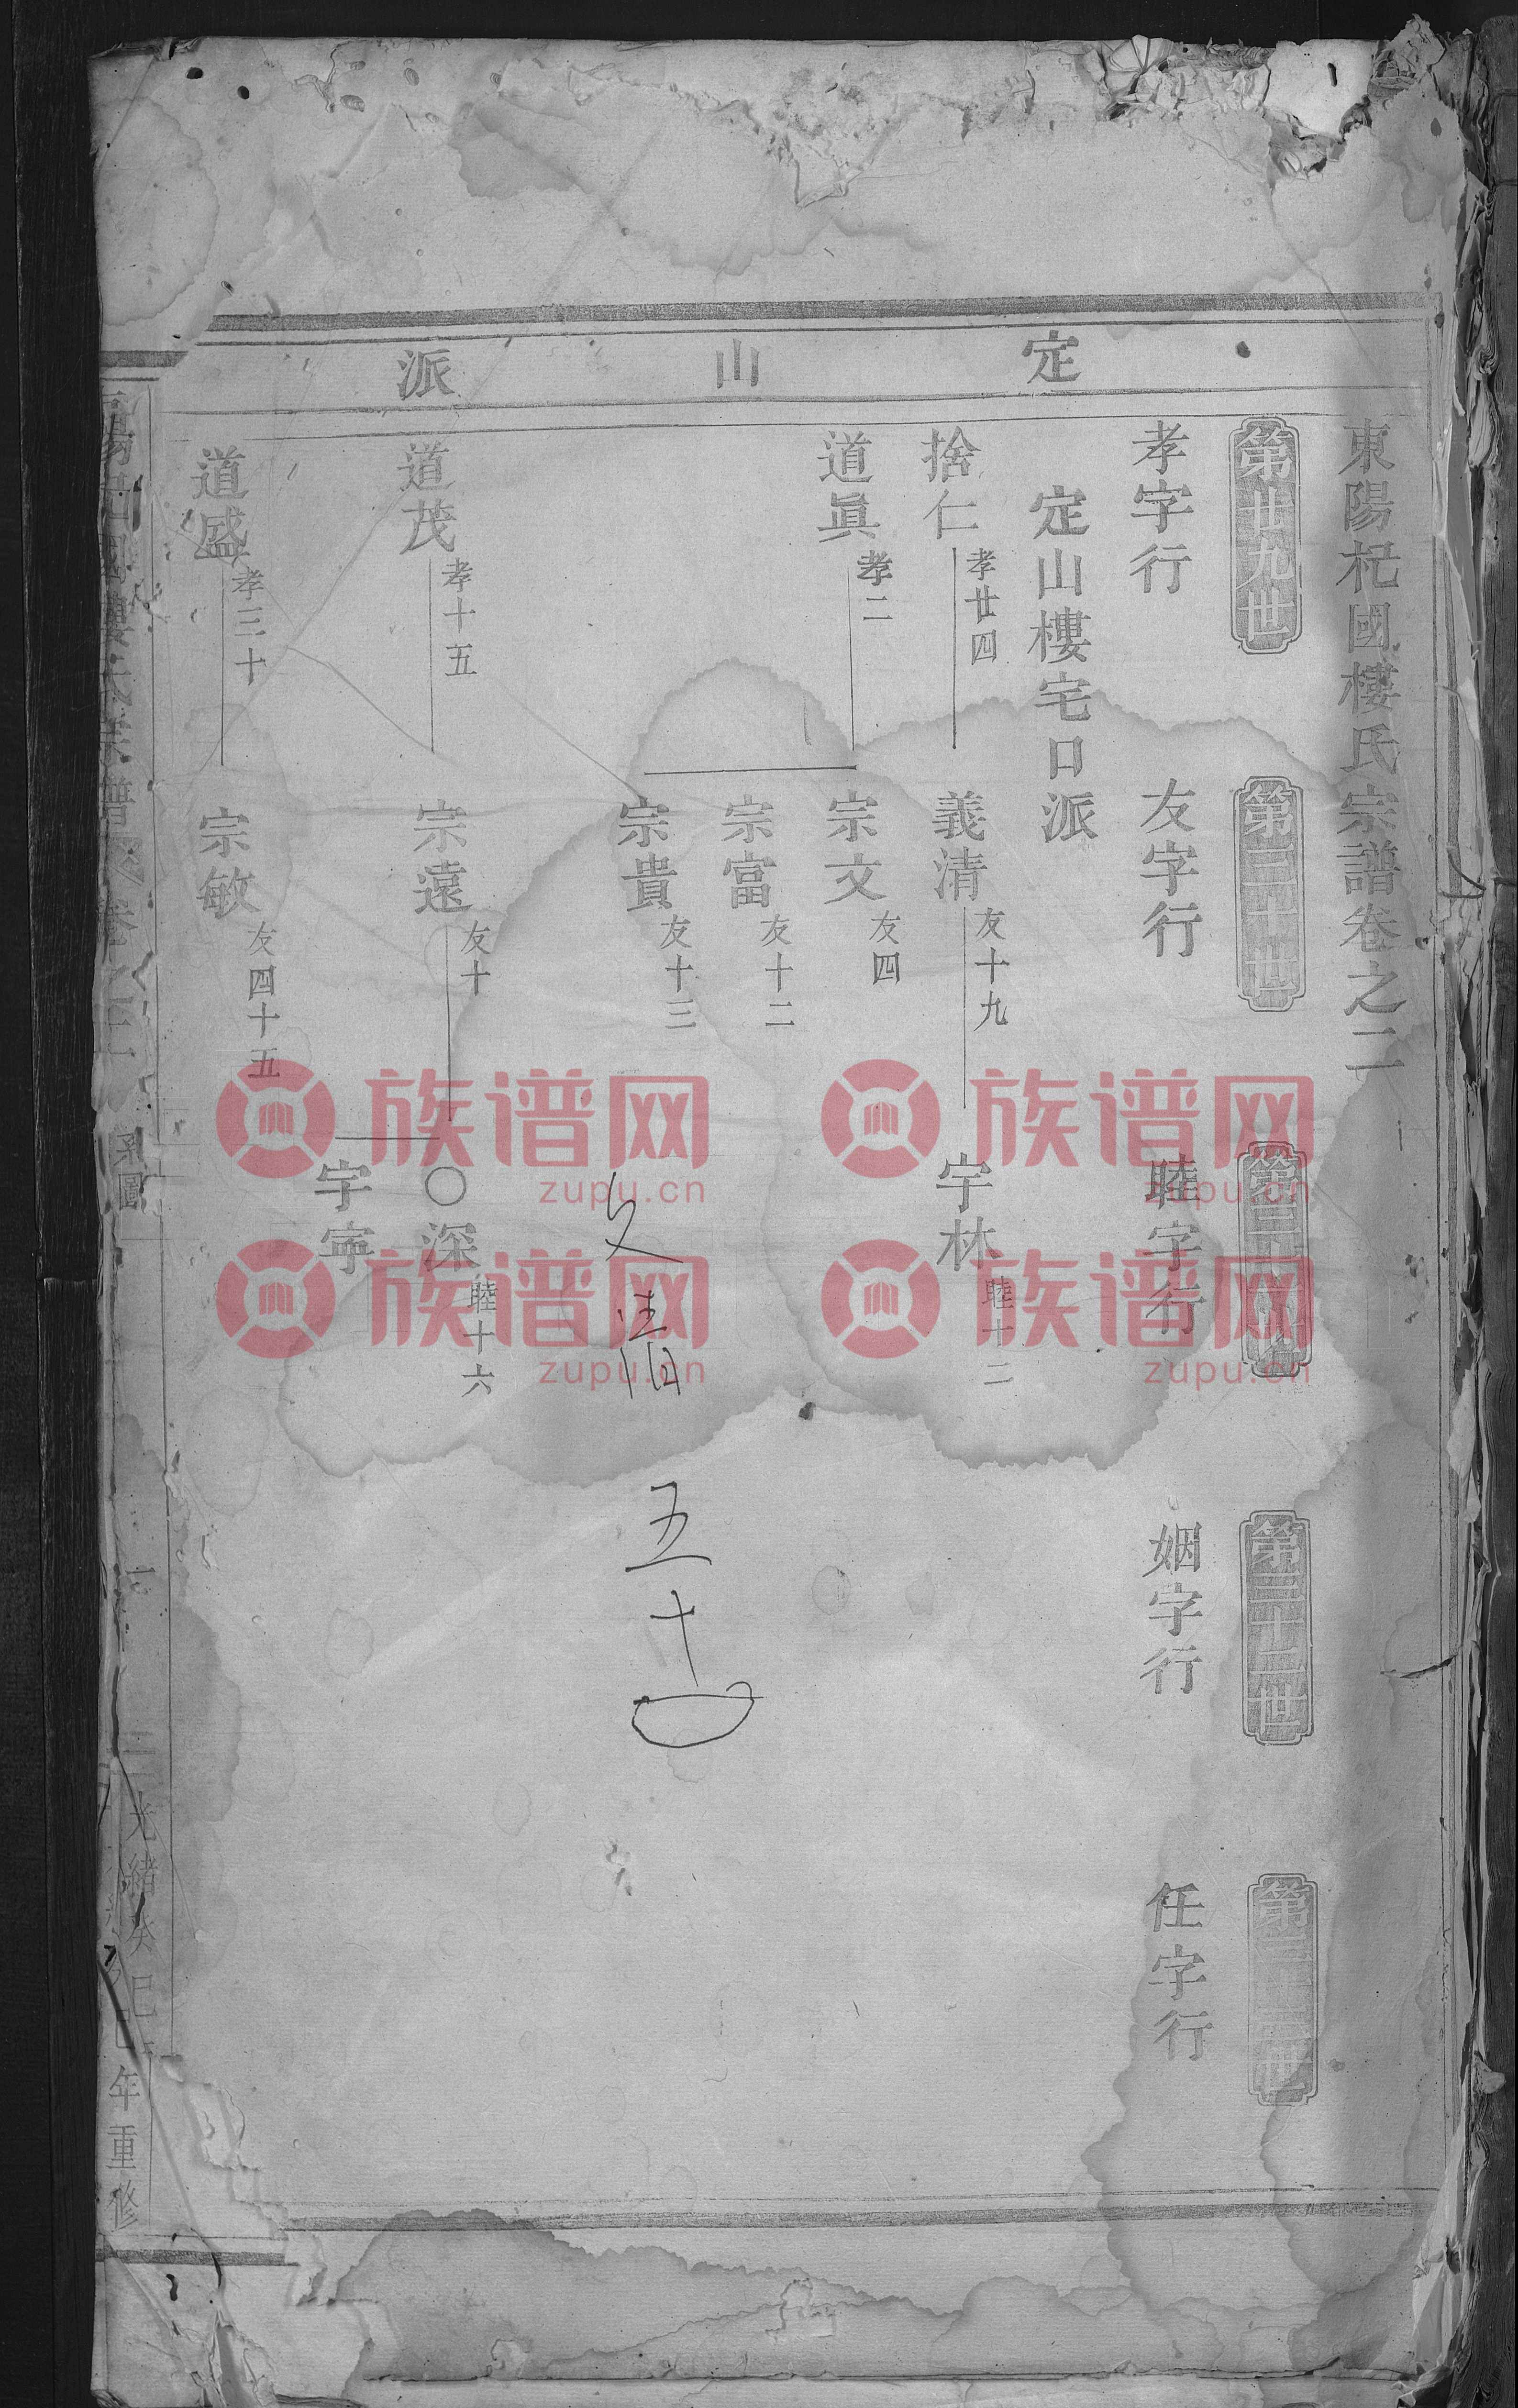 定山派
東陽杞國樓氏宗譜卷之二
第廿九世
第三十世
第三十二世
第三十三世
孝字行
友字行
睦字行
姻字行
任字行
定山樓宅口派
捨仁 孝廿四
義清 友十九
宇林 睦十二
道眞 孝二
宗文 友四
宗富 友十二
宗貴 友十三
五十
道茂 孝十五
宗遠 友十
〇深 睦十六
宇寧
道盛 孝三十
宗敏 友四十五
系圖
光緒癸巳
年重修
族谱网
zupu.cn
族谱网
zupu.cn
族谱网
zupu.cn
族谱网
zupu.cn